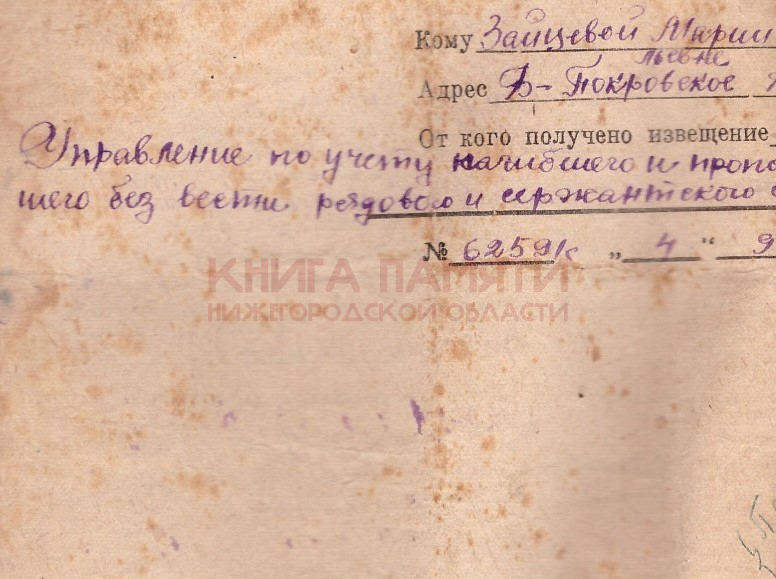 Кому Зайцевой Марии
льевне
Адрес Б-Покровское
От кого получено извещение
Управление по учету погибшего и пропа
шего без вести рядового и сержантского
№ 6259/к „ 4 “ 9
КНИГА ПАМЯТИ
НИЖЕГОРОДСКОЙ ОБЛАСТИ